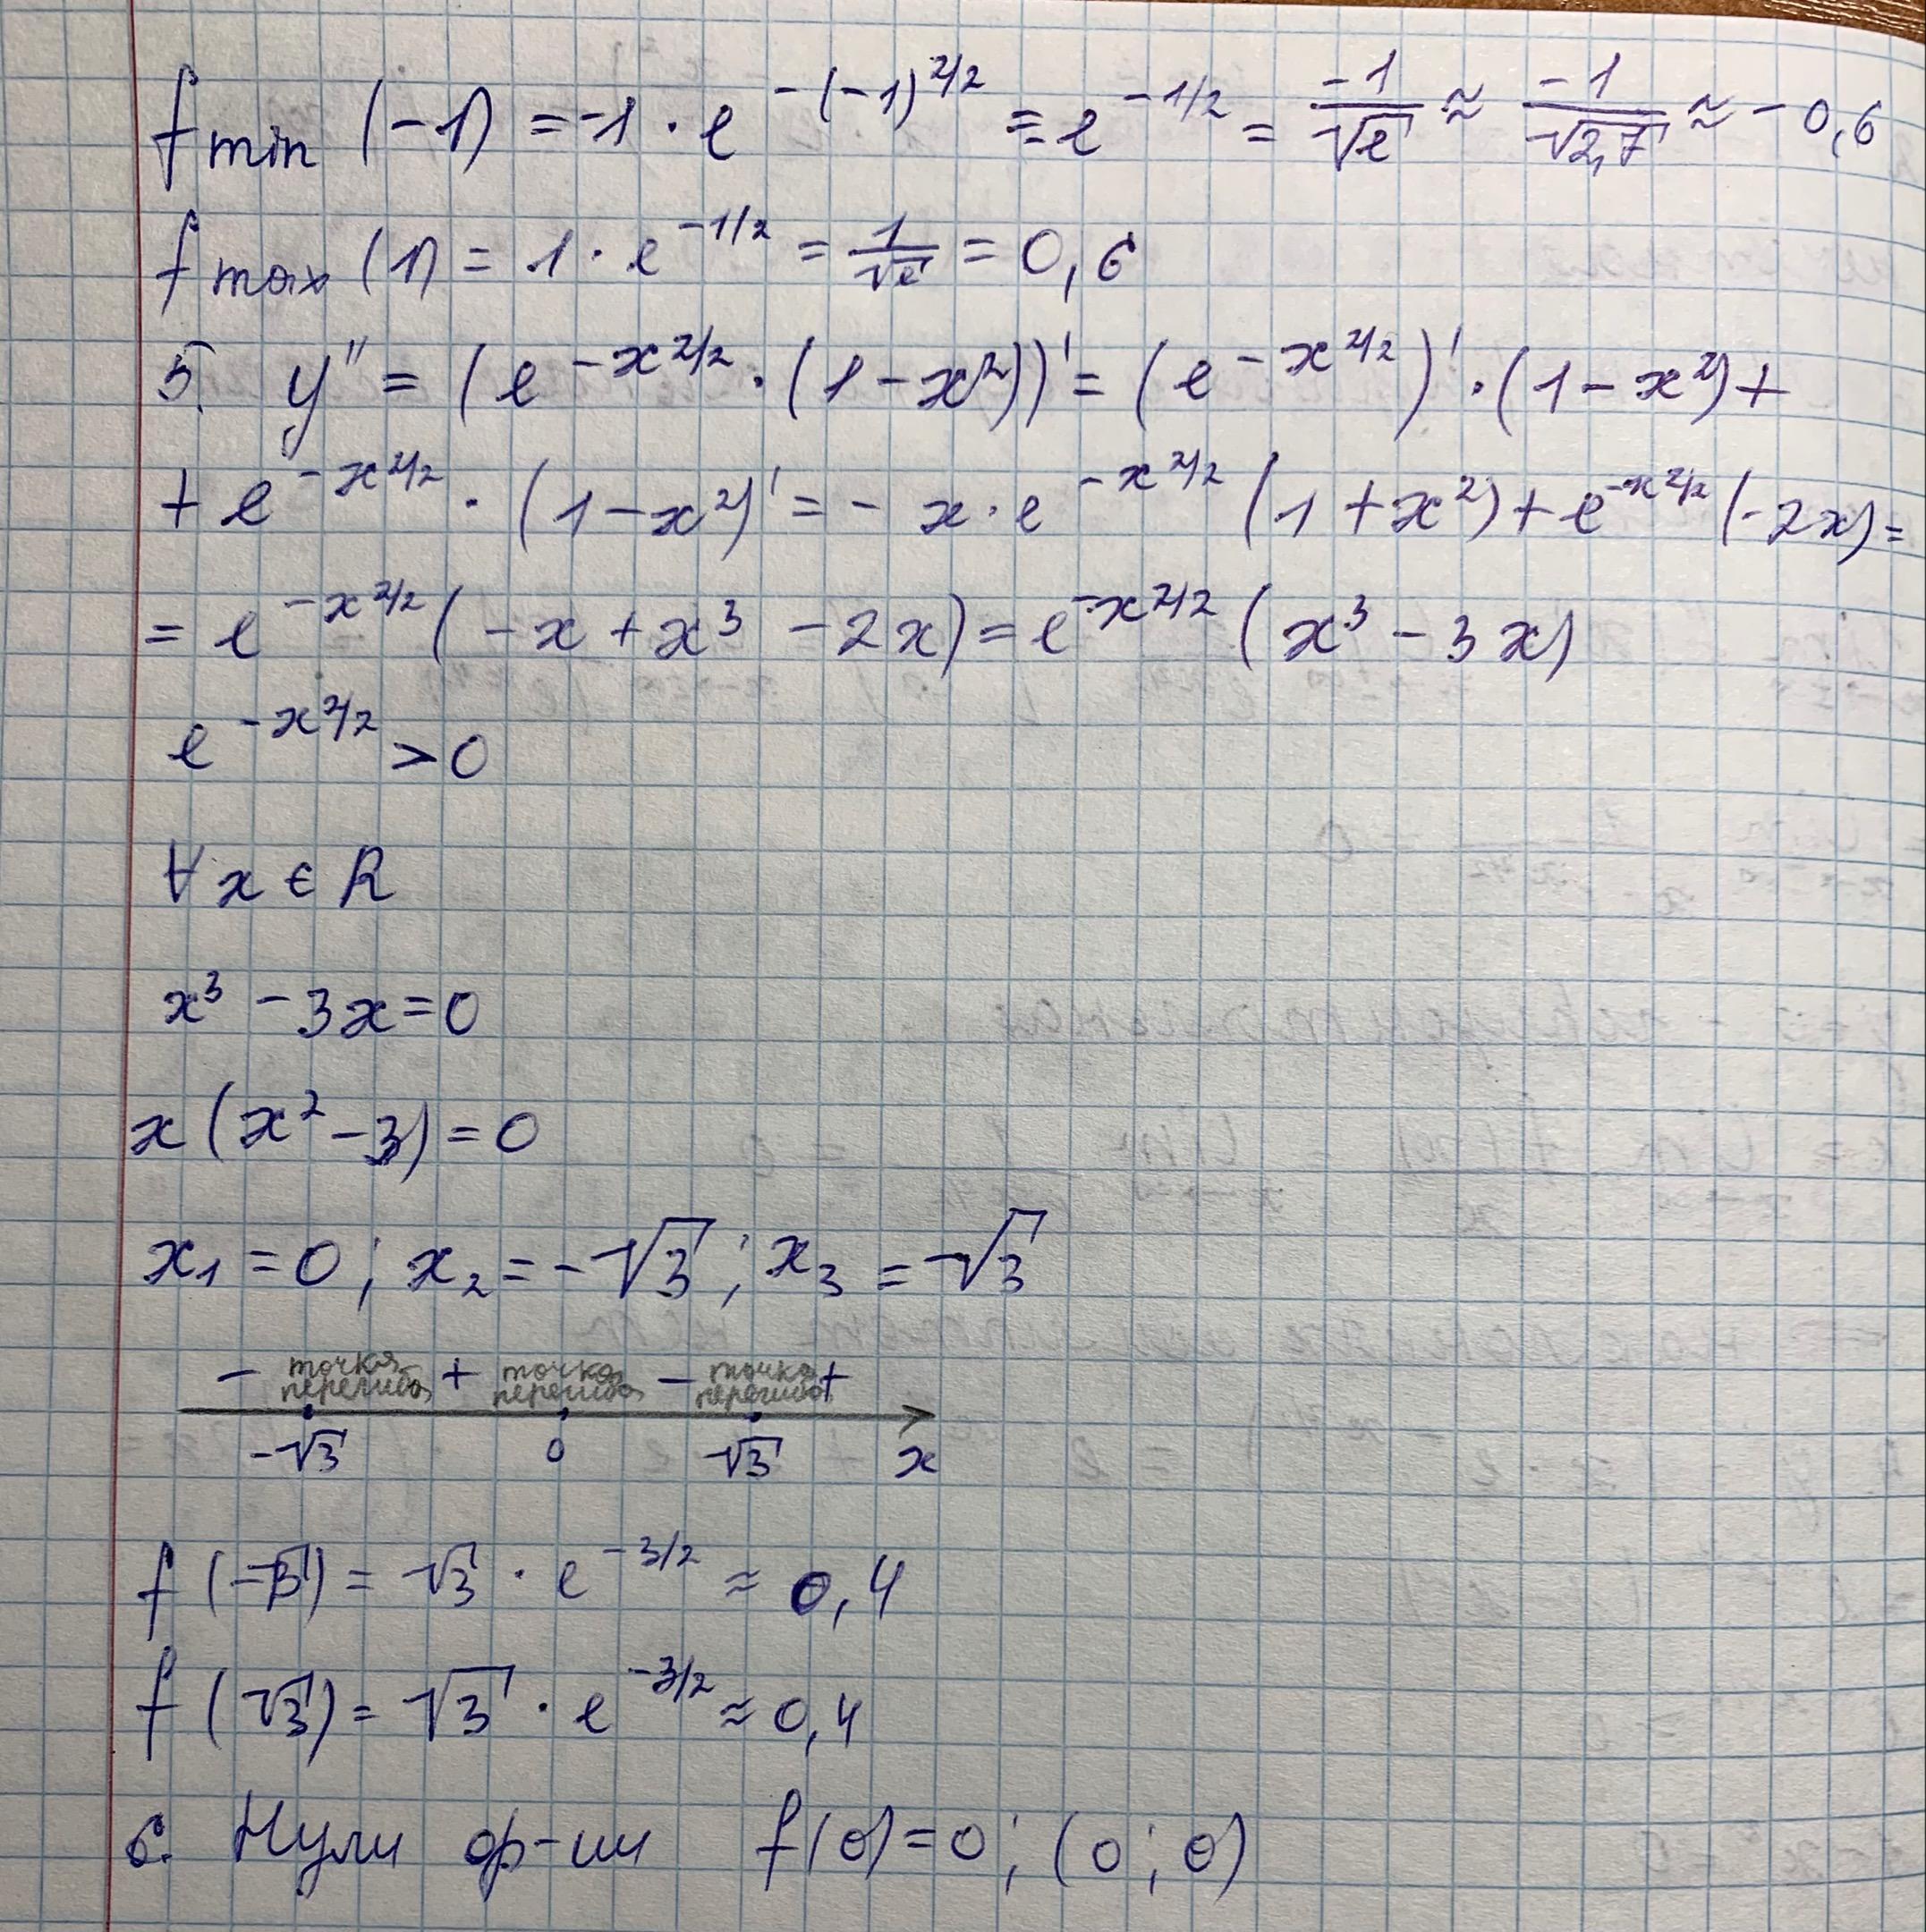 f min (-1) = -1 · e^{-(-1)^{2}/2} = e^{-1/2} = -1/√e ≈ -1/√2,7 ≈ -0,6
f max (1) = 1 · e^{-1/2} = 1/√e = 0,6
5. y'' = (e^{-x^{2}/2} · (1-x^{2}))' = (e^{-x^{2}/2})' · (1-x^{2}) +
+ e^{-x^{2}/2} · (1-x^{2})' = -x · e^{-x^{2}/2} (1+x^{2}) + e^{-x^{2}/2} (-2x) =
= e^{-x^{2}/2} (-x + x^{3} - 2x) = e^{-x^{2}/2} (x^{3} - 3x)
e^{-x^{2}/2} > 0
∀ x ∈ R
x^{3} - 3x = 0
x (x^{2} - 3) = 0
x₁ = 0 ; x₂ = -√3 ; x₃ = √3
- точка перегиба + точка перегиба - точка перегиба +
-√3 0 √3 x
f (-√3) = √3 · e^{-3/2} ≈ 0,4
f (√3) = √3 · e^{-3/2} ≈ 0,4
6. Нули ф-ии f(0) = 0 ; (0 ; 0)